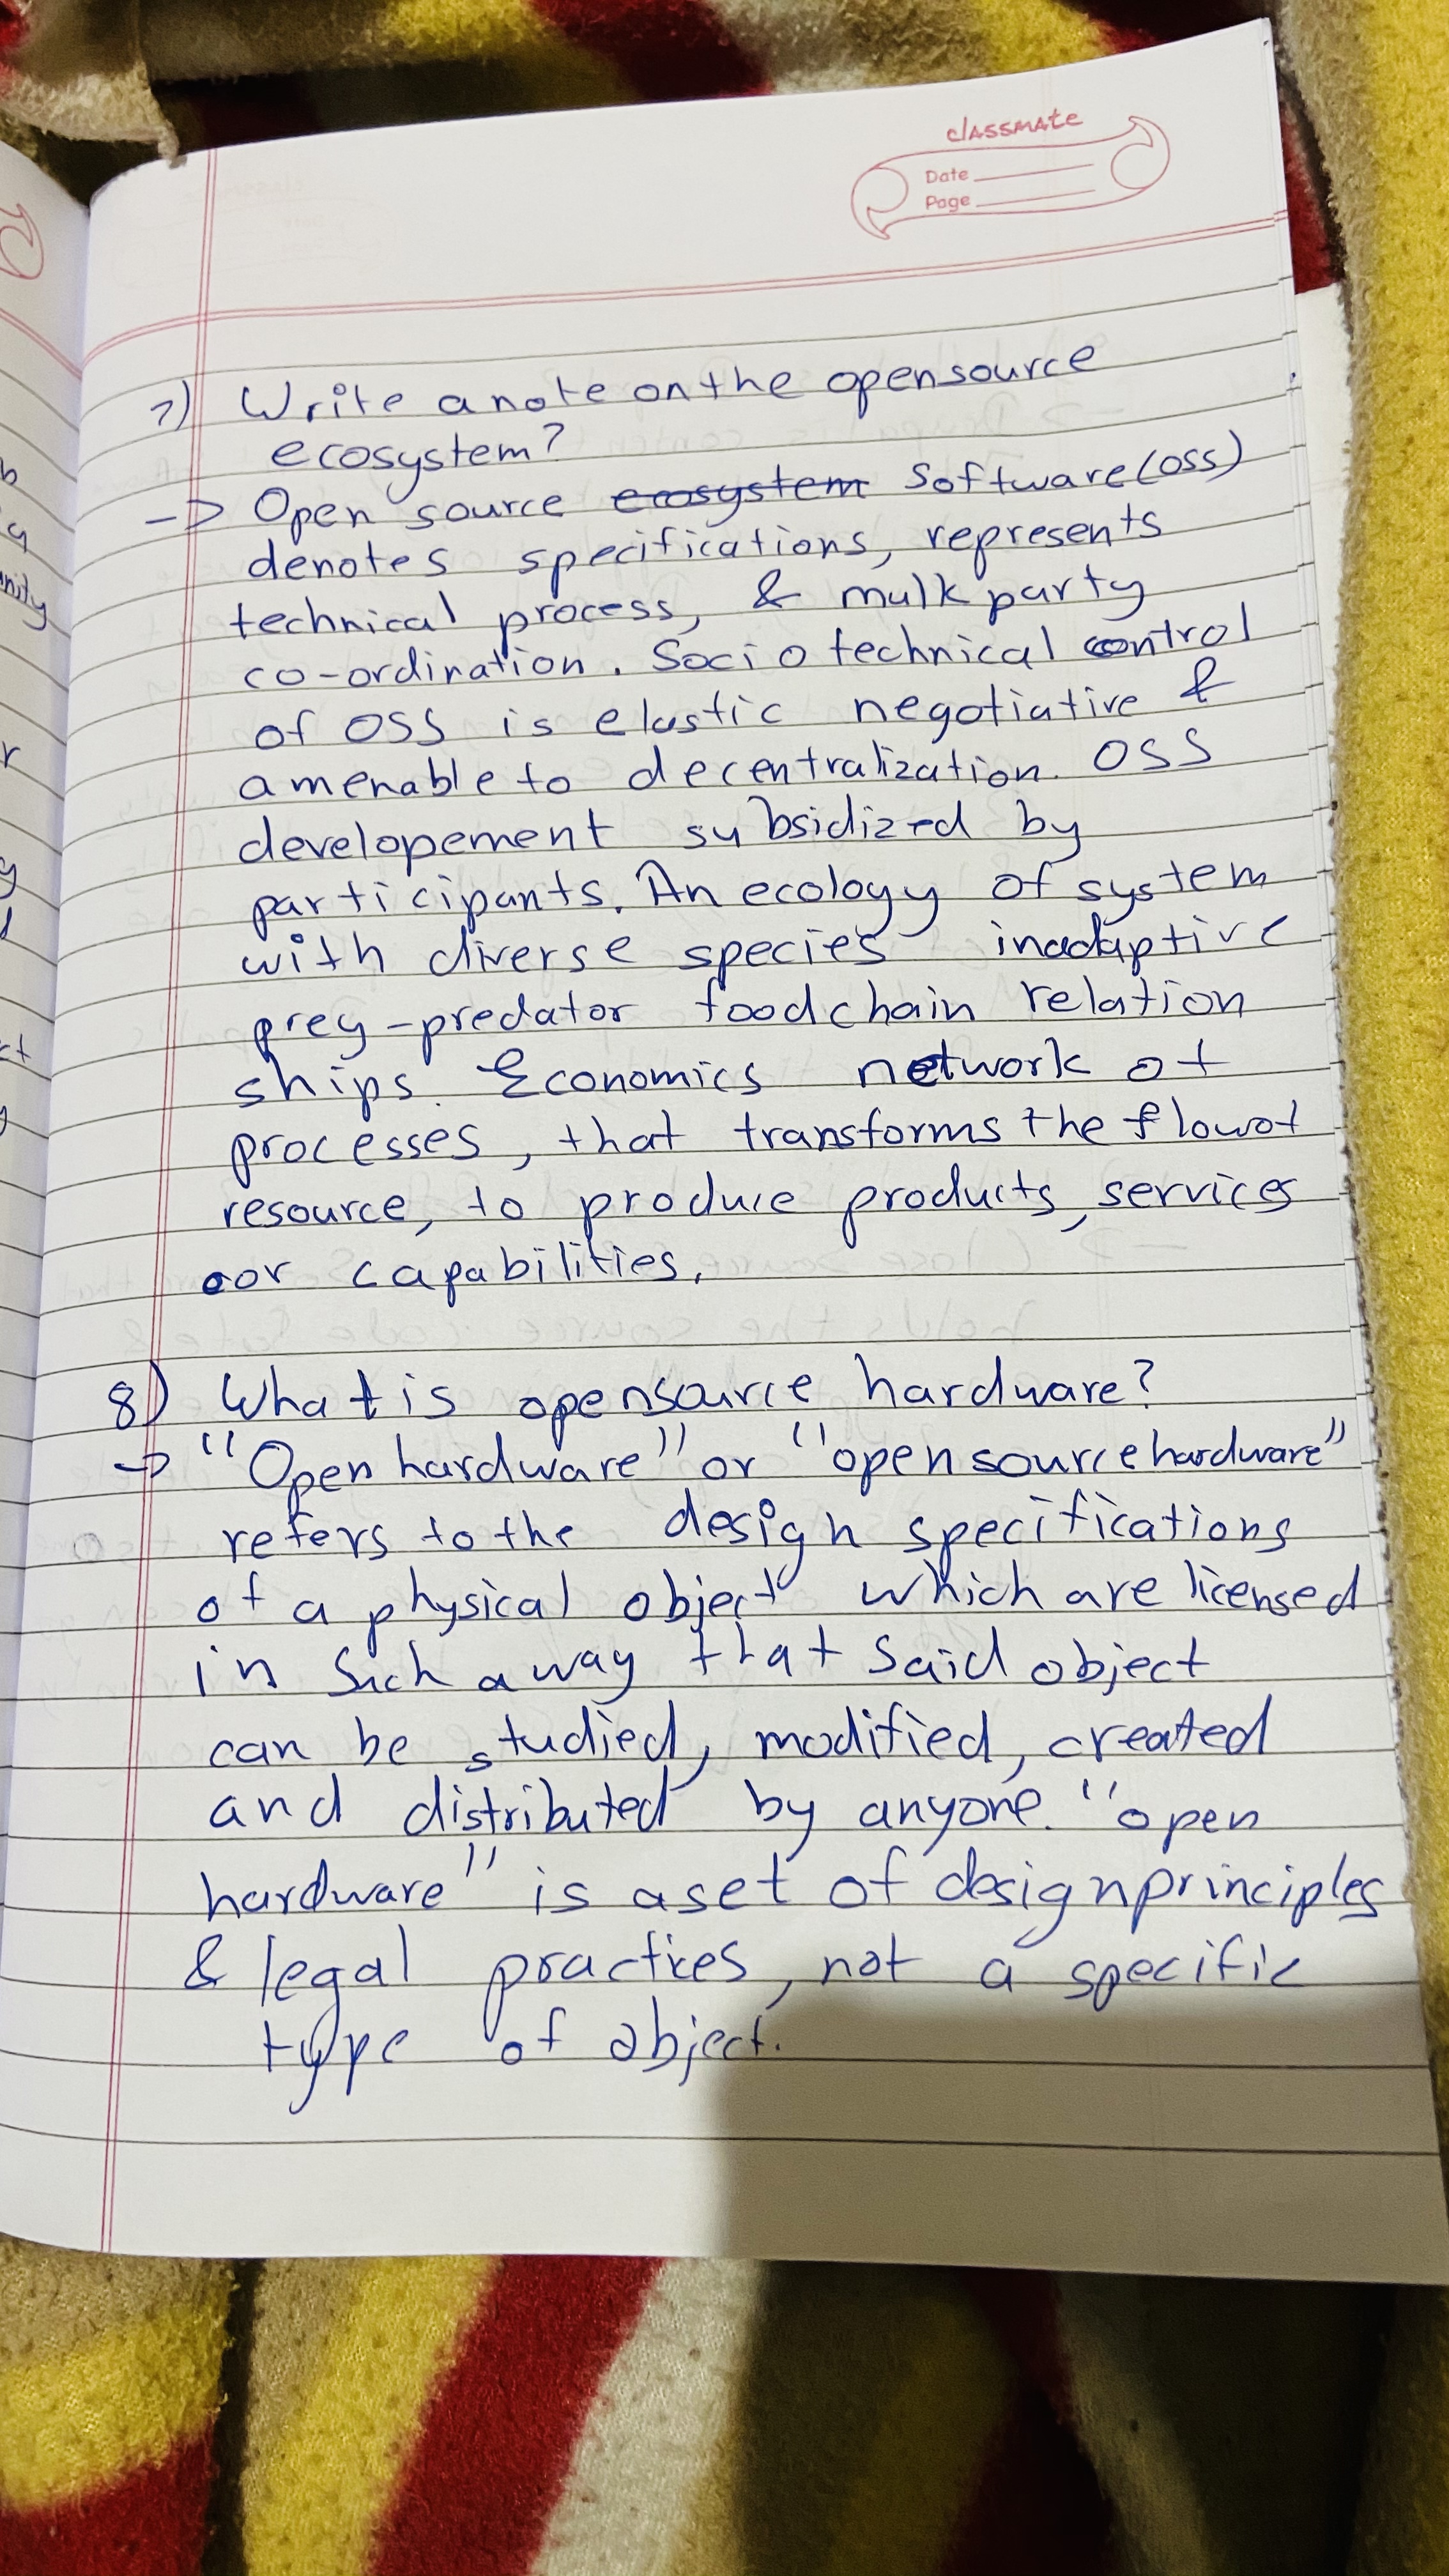 classmate
Date
Page
7) Write a note on the opensource
ecosystem?
-> Open source ecosystem Software (OSS)
denotes specifications, represents
technical process, & mulkparty
co-ordination. Socio technical control
of OSS is elastic negotiative &
amenable to decentralization. OSS
developement subsidized by
participants. An ecology of system
with diverse species inadaptive
prey-predator foodchain relation
ships. Economics network of
processes, that transforms the flow of
resource, to produce products, services
or capabilities.
8) What is opensource hardware?
-> "Open hardware" or "open source hardware"
refers to the design specifications
of a physical object which are licensed
in such a way that said object
can be studied, modified, created
and distributed by anyone. "open
hardware" is a set of design principles
& legal practices, not a specific
type of object.